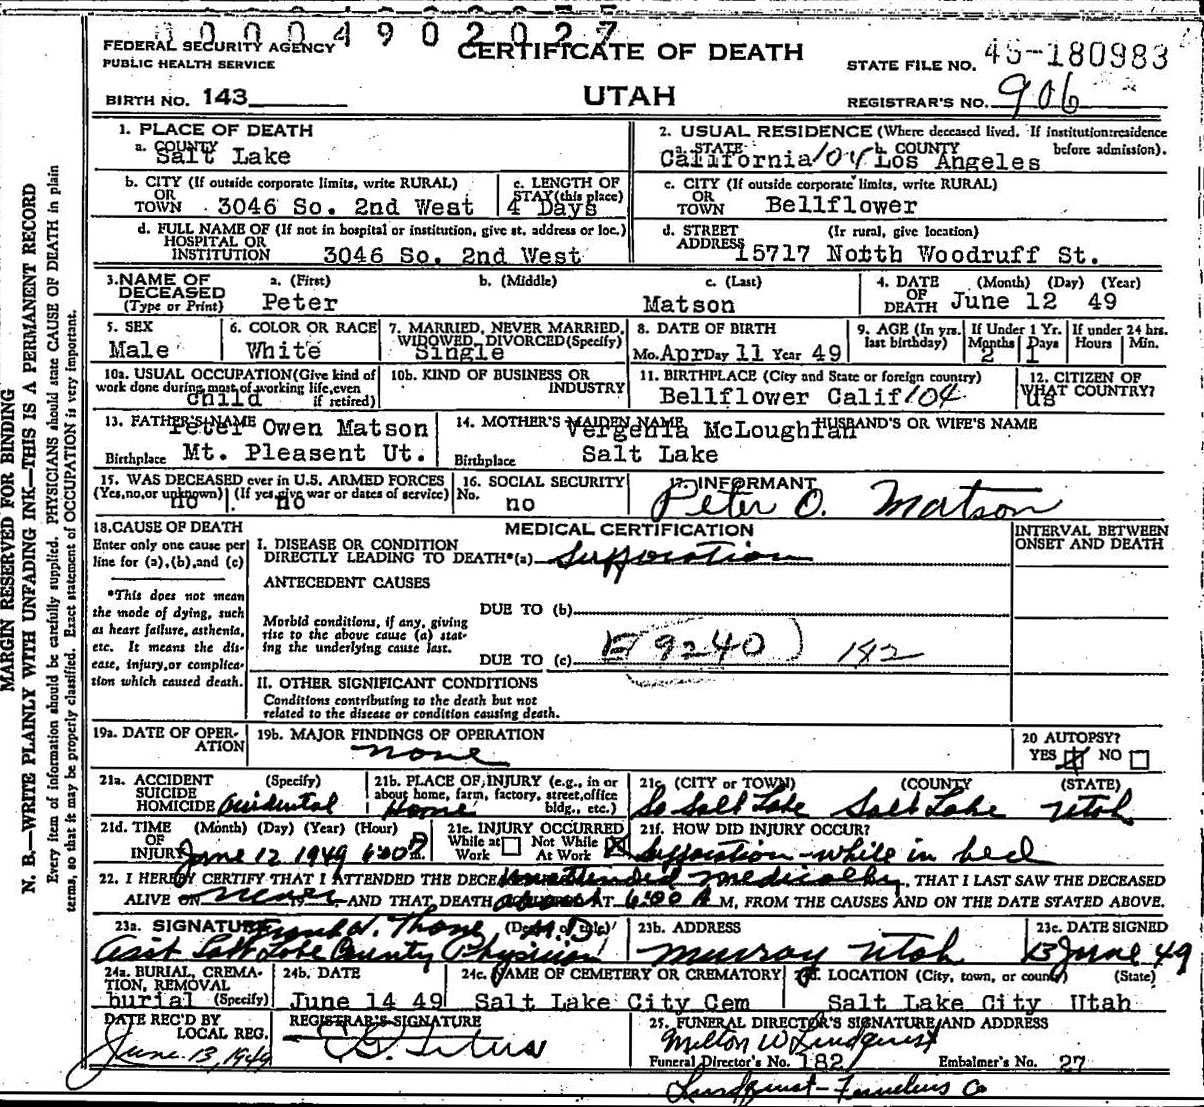 0 0 0 0 4 9 0 2 0 2 7
FEDERAL SECURITY AGENCY
PUBLIC HEALTH SERVICE
CERTIFICATE OF DEATH
STATE FILE NO. 45-180983
BIRTH NO. 143
UTAH
REGISTRAR'S NO. 906
MARGIN RESERVED FOR BINDING
N. B.—WRITE PLAINLY WITH UNFADING INK—THIS IS A PERMANENT RECORD
Every item of information should be carefully supplied. PHYSICIANS should state CAUSE OF DEATH in plain
terms, so that it may be properly classified. Exact statement of OCCUPATION is very important.
1. PLACE OF DEATH
a. COUNTY
Salt Lake
2. USUAL RESIDENCE (Where deceased lived. If institution:residence
before admission).
a. STATE b. COUNTY
California 104 Los Angeles
b. CITY (If outside corporate limits, write RURAL)
OR
TOWN 3046 So. 2nd West
c. LENGTH OF
STAY (this place)
4 Days
c. CITY (If outside corporate limits, write RURAL)
OR
TOWN Bellflower
d. FULL NAME OF (If not in hospital or institution, give st. address or loc.)
HOSPITAL OR
INSTITUTION 3046 So. 2nd West
d. STREET (Ir rural, give location)
ADDRESS 15717 Notth Woodruff St.
3.NAME OF DECEASED (Type or Print)
a. (First) b. (Middle) c. (Last)
Peter Matson
4. DATE OF DEATH (Month) (Day) (Year)
June 12 49
5. SEX
Male
6. COLOR OR RACE
White
7. MARRIED, NEVER MARRIED,
WIDOWED, DIVORCED(Specify)
Single
8. DATE OF BIRTH
Mo. Apr Day 11 Year 49
9. AGE (In yrs. last birthday)
If Under 1 Yr.
Months Days
2 1
If under 24 hrs.
Hours Min.
10a. USUAL OCCUPATION(Give kind of
work done during most of working life,even
if retired)
child
10b. KIND OF BUSINESS OR
INDUSTRY
11. BIRTHPLACE (City and State or foreign country)
Bellflower Calif 104
12. CITIZEN OF
WHAT COUNTRY?
us
13. FATHER'S NAME
Peter Owen Matson
Birthplace Mt. Pleasent Ut.
14. MOTHER'S MAIDEN NAME HUSBAND'S OR WIFE'S NAME
Vergenia McLoughlan
Birthplace Salt Lake
15. WAS DECEASED ever in U.S. ARMED FORCES
(Yes,no,or unknown) (If yes,give war or dates of service)
no no
16. SOCIAL SECURITY
No. no
17. INFORMANT
Peter O. Matson
18.CAUSE OF DEATH
Enter only one cause per
line for (a),(b),and (c)
*This does not mean
the mode of dying, such
as heart failure, asthenia,
etc. It means the dis-
ease, injury,or complica-
tion which caused death.
MEDICAL CERTIFICATION
INTERVAL BETWEEN
ONSET AND DEATH
I. DISEASE OR CONDITION
DIRECTLY LEADING TO DEATH*(a) Suffocation
ANTECEDENT CAUSES
DUE TO (b)
Morbid conditions, if any, giving
rise to the above cause (a) stat-
ing the underlying cause last.
E 9240 182
DUE TO (c)
II. OTHER SIGNIFICANT CONDITIONS
Conditions contributing to the death but not
related to the disease or condition causing death.
19a. DATE OF OPER-
ATION
19b. MAJOR FINDINGS OF OPERATION
none
20 AUTOPSY?
YES NO
21a. ACCIDENT (Specify)
SUICIDE
HOMICIDE Accidental
21b. PLACE OF INJURY (e.g., in or
about home, farm, factory, street,office
bldg., etc.)
Home
21c. (CITY or TOWN) (COUNTY) (STATE)
So Salt Lake Salt Lake Utah
21d. TIME (Month) (Day) (Year) (Hour)
OF
INJURY June 12 1949 6:00 m.
21e. INJURY OCCURRED
While at Work Not While At Work
21f. HOW DID INJURY OCCUR?
Suffocation—while in bed
22. I HEREBY CERTIFY THAT I ATTENDED THE DECEASED unattended medically, THAT I LAST SAW THE DECEASED
ALIVE ON never AND THAT DEATH OCCURRED AT about 6:00 A M, FROM THE CAUSES AND ON THE DATE STATED ABOVE.
23a. SIGNATURE (Degree or title)
M.D.
Asst Salt Lake County Physician
23b. ADDRESS
Murray Utah
23c. DATE SIGNED
13 June 49
24a. BURIAL, CREMA-
TION, REMOVAL
burial (Specify)
24b. DATE
June 14 49
24c. NAME OF CEMETERY OR CREMATORY
Salt Lake City Cem
24d. LOCATION (City, town, or county) (State)
Salt Lake City Utah
DATE REC'D BY
LOCAL REG.
June 13, 1949
REGISTRAR'S SIGNATURE
25. FUNERAL DIRECTOR'S SIGNATURE AND ADDRESS
Milton W Lindquist
Funeral Director's No. 182 Embalmer's No. 27